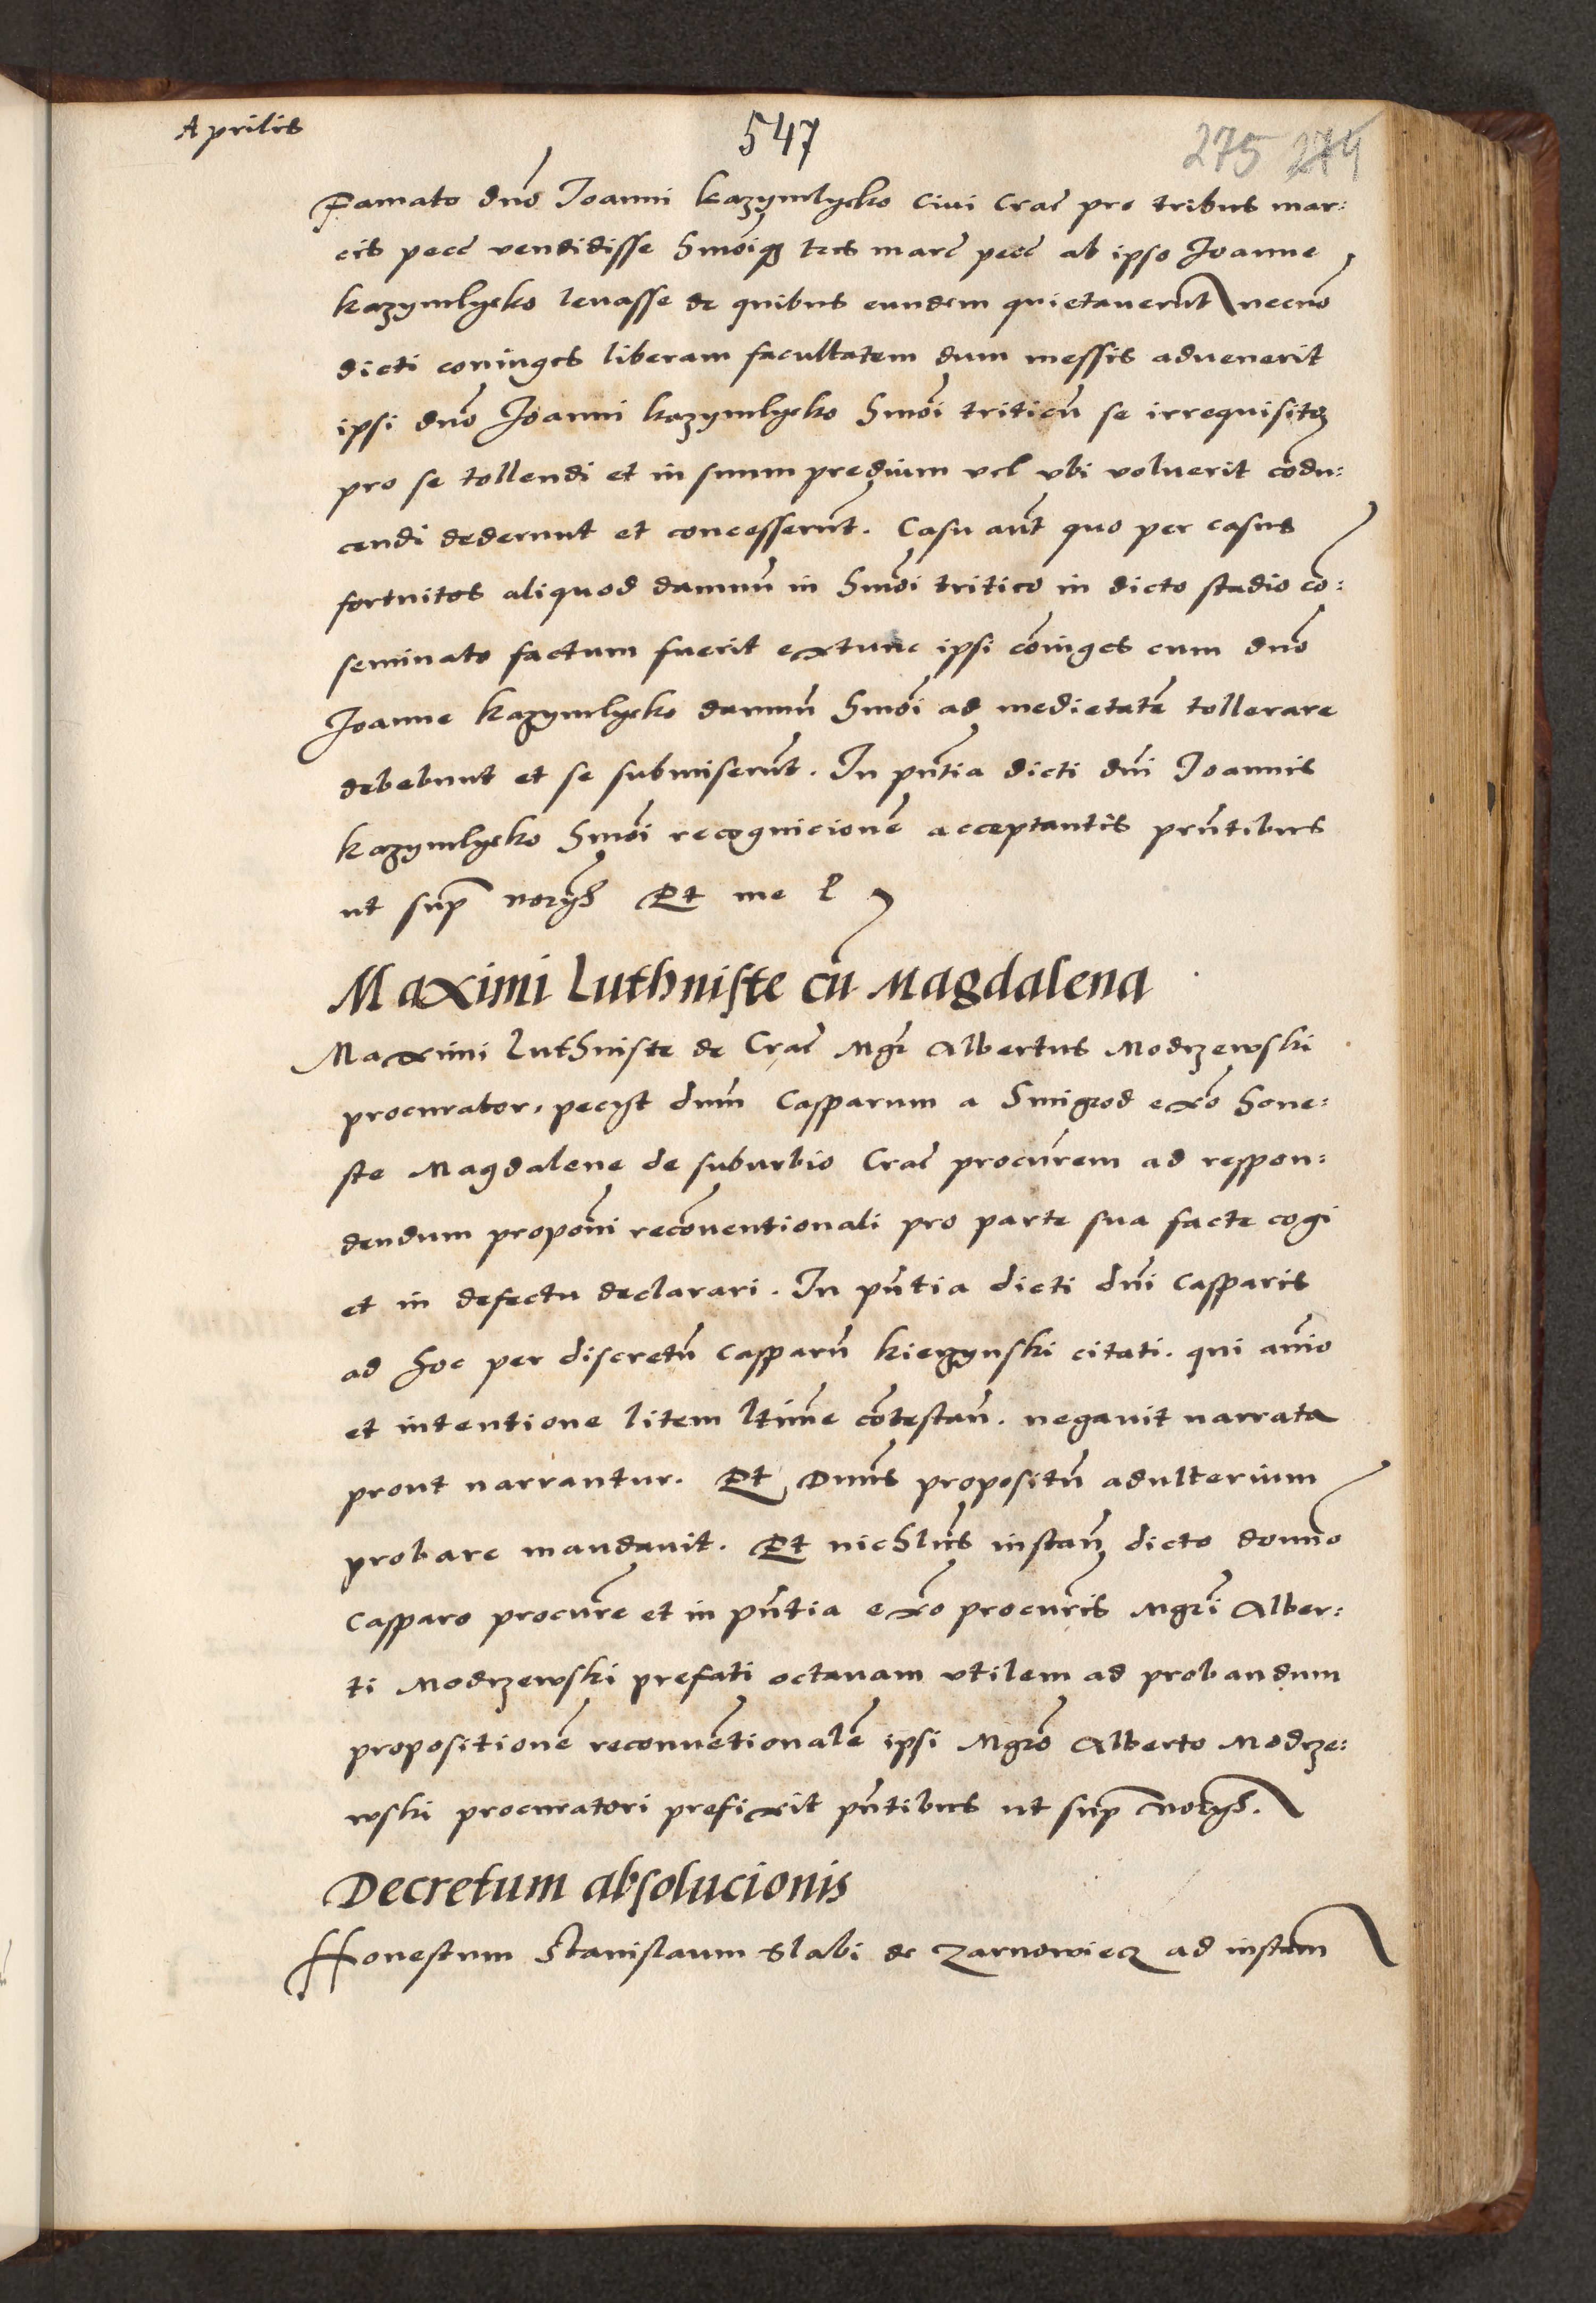 Aprilis
547
275 274
Famato dno Joanni kazymlycko Civi Crac pro tribus mar:
cis pecc vendidisse hmoiqz tres marc pecc ab ipso Joanne
kazymlycko levasse de quibus eundem quietaverunt necno
dicti coniuges liberam facultatem dum messis advenerit
ipsi dno Joanni kazymlycko hmoi triticu se irrequisitis
pro se tollendi et in suum predium vel vbi voluerit codu:
cendi dederunt et concesserunt. Casu aut quo per casus
fortuitos aliquod damnu in hmoi tritico in dicto stadio co:
seminato factum fuerit extunc ipsi coniuges cum dno
Joanne kazymlycko damnu hmoi ad medietate tollerare
debebunt et se submiserunt. In pntia dicti dni Joannis
kazymlycko hmoi recognicione acceptantis pntibus
ut sup norys Et me
Maximi Luthniste cu Magdalena
Maximi luthniste de Crac Mgr Albertus Modrzewski
procurator, pecyt dnm Casparum a Smigrod exo hone:
ste Magdalene de suburbio Crac procurem ad respon:
dendum proponi reconventionali pro parte sua facte cogi
et in defectu declarari. In pntia dicti dni Casparis
ad hoc per discretu Casparu kiezynski citati. qui animo
et intentione litem ltime contestan. negavit narrata
prout narrantur. Et Dnus propositu adulterium
probare mandavit. Et nichlus instan dicto domino
Casparo procure et in pntia exo procuris Mgri Alber:
ti Modrzewski prefati octavam vtilem ad probandum
propositione reconventionale ipsi Mgro Alberto Modrze:
wski procuratori prefixit pntibus ut sup norys.
Decretum absolucionis
Honestum Stanislaum Slabi de Zarnowiecz ad instam